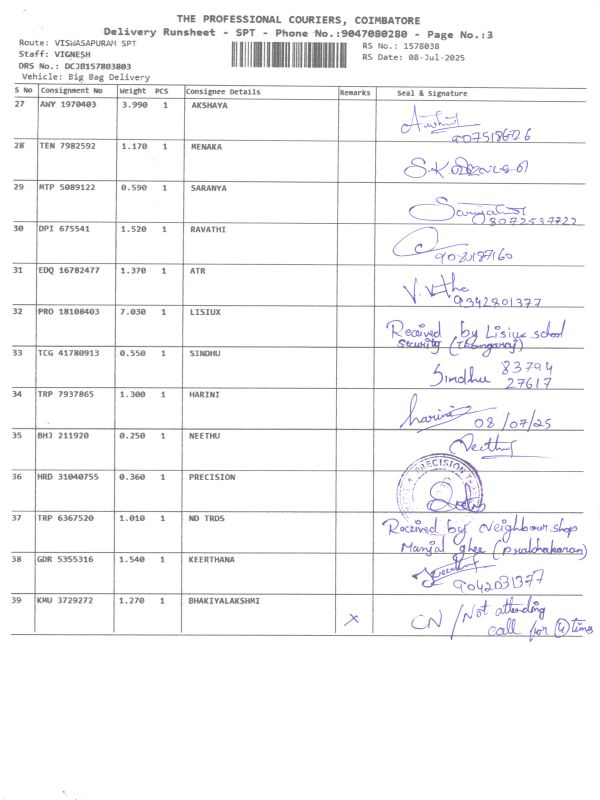 THE PROFESSIONAL COURIERS, COIMBATORE
Delivery Runsheet - SPT - Phone No.:9047080280 - Page No.:3
Route: VISWASAPURAM SPT
RS No.: 1578038
Staff: VIGNESH
RS Date: 08-Jul-2025
DRS No.: DCJB157803803
Vehicle: Big Bag Delivery
S No Consignment No Weight PCS Consignee Details Remarks Seal & Signature
27 AWY 1970403 3.990 1 AKSHAYA
28 TEN 7982592 1.170 1 MENAKA
29 MTP 5089122 0.590 1 SARANYA
8072537722
30 DPI 675541 1.520 1 RAVATHI
31 EDQ 16782477 1.370 1 ATR
9342801377
32 PRO 18108403 7.030 1 LISIUX
Received by Lisiux school
Security
33 TCG 41780913 0.550 1 SINDHU
Sindhu 83794
27617
34 TRP 7937865 1.300 1 HARINI
harini 08/07/25
35 BHJ 211920 0.250 1 NEETHU
Neethu
36 HRD 31040755 0.360 1 PRECISION
PRECISION
37 TRP 6367520 1.010 1 ND TRDS
Received by Neighbour shop
Manjal ghee (Prabhakaran)
38 GDR 5355316 1.540 1 KEERTHANA
9042031377
39 KMU 3729272 1.270 1 BHAKIYALAKSHMI
X CN / Not attending
call for 4 time